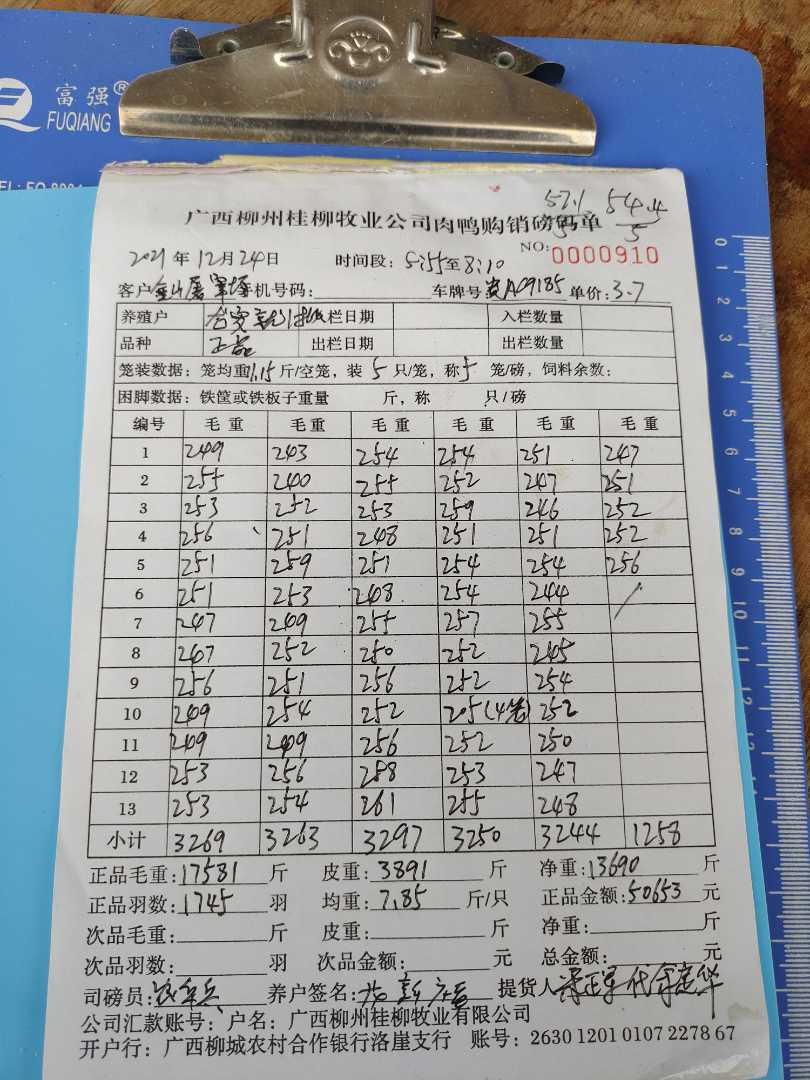 富强®
FUQIANG
57.1 54.4
5
广西柳州桂柳牧业公司肉鸭购销磅码单
NO: 0000910
2021年12月24日 时间段: 5:55至8:10
客户 机号码: 车牌号 A09185 单价: 3.7
养殖户 入栏日期 入栏数量
品种 正品 出栏日期 出栏数量
笼装数据: 笼均重11.15斤/空笼, 装5只/笼, 称5笼/磅, 饲料余数:
困脚数据: 铁筐或铁板子重量 斤, 称 只/磅
编号 毛重 毛重 毛重 毛重 毛重 毛重
1 249 243 254 254 251 247
2 255 240 255 252 247 251
3 253 252 253 259 246 252
4 256 251 248 251 251 252
5 251 259 251 254 254 256
6 251 253 248 254 244
7 247 249 255 257 255
8 247 252 250 252 245
9 256 251 256 252 254
10 249 254 252 205(4笼) 252
11 249 249 256 252 250
12 253 256 258 253 247
13 253 254 261 255 248
小计 3269 3263 3297 3250 3244 1258
正品毛重: 17581斤 皮重: 3891斤 净重: 13690斤
正品羽数: 1745羽 均重: 7.85斤/只 正品金额: 50653元
次品毛重: 斤 皮重: 斤 净重: 斤
次品羽数: 羽 次品金额: 元 总金额: 元
司磅员: 养户签名: 提货人
公司汇款账号: 户名: 广西柳州桂柳牧业有限公司
开户行: 广西柳城农村合作银行洛崖支行 账号: 2630 1201 0107 2278 67
0 1 2 3 4 5 6 7 8 9 10